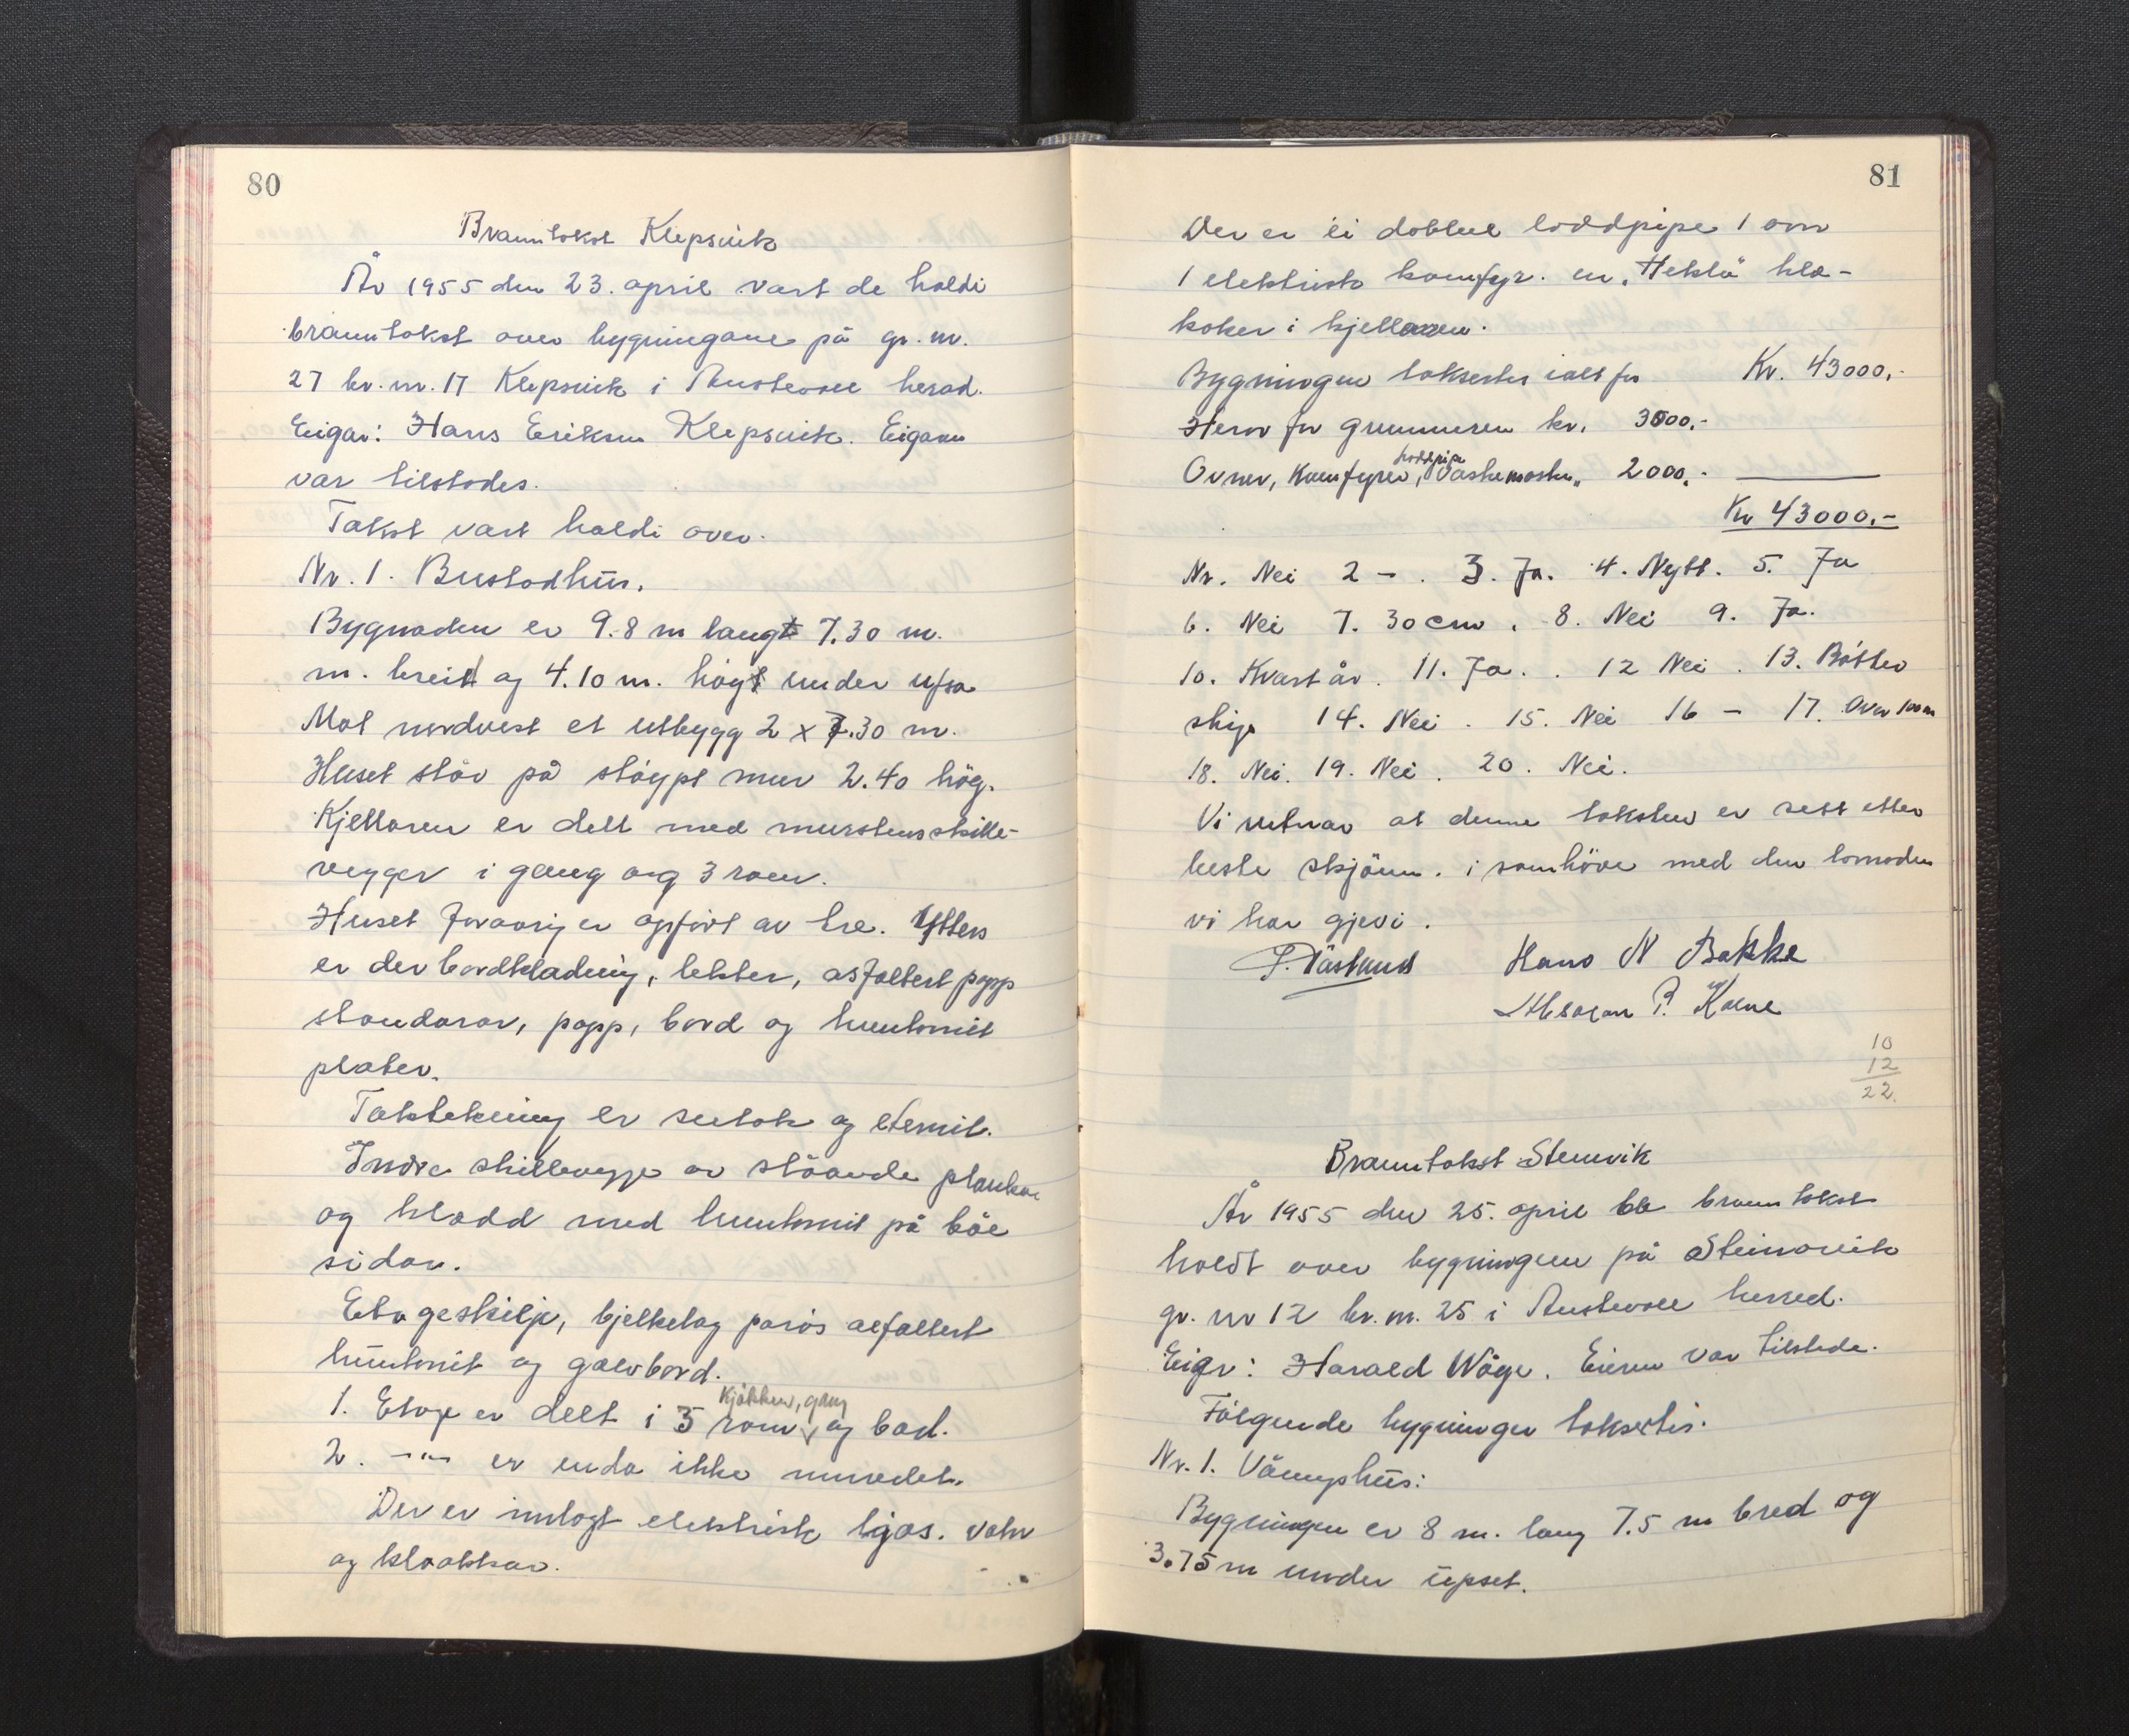 80
Branntakst Klepsvik
År 1955 den 23. april vart de haldi
branntakst over bygningane på gr. nr.
27 br. nr. 17 Klepsvik i Austevoll herad.
Eigar: Hans Eriksen Klepsvik. Eigaren
var tilstades.
Takst vart haldi over.
Nr. 1. Bustadhus.
Bygnaden er 9.8 m langt 7.30 m.
m. breid og 4.10 m. högt under ufsa
Mot nordvest et utbygg 2 x 7.30 m.
Huset står på stöypt mur 2.40 hög.
Kjellaren er delt med murstensskille-
vegger i gang og 3 rom.
Huset forövrig er opfört av tre. Ytters
er der bordkledning, lekter, asfaltert papp
standarar, papp, bord og huntonit
plater.
Taktekning er sutak og eternit.
Indre skillevegge av ståande plankar
og kledd med huntonit på båe
sidor.
Etageskilje, bjelkelag porös asfaltert
huntonit og golvbord.
kjökken, gang
1. Etage er delt i 3 rom og bad.
2. -"- er enda ikke innredet.
Der er innlagt elektrisk ljos. vatn
og kloakkar.
81
Der er ei dobbel loddpipe 1 ovn
1 elektrisk komfyr. en "Hekla" kla-
koker i kjellaren.
Bygningen taksertes ialt for Kr. 43000,-
Herav for grunnmuren kr. 3500,-
loddpipe
Ovner, Komfyrer, Vaskemaskn " 2000,-
Kr 43000,-
Nr. Nei 2 - . 3. Ja. 4. Nytt. 5. Ja
6. Nei 7. 30 cm . 8. Nei 9. Ja.
10. Kvart år. 11. Ja. . 12 Nei . 13. Bötter
stige 14. Nei . 15. Nei 16 - 17. Over 100 m
18. Nei. 19. Nei . 20. Nei.
Vi vitnar at denne taksten er sett etter
beste skjönn. i samhöve med den lovnaden
vi har gjevi .
Hans N Bakke
10
12
22.
Branntakst Stenvik
År 1955 den 25. april ble branntakst
holdt over bygningen på Steinsvik
gr. nr 12 br. nr. 25 i Austevoll herred.
Eigr: Harald Våge. Eieren var tilstede.
Fölgende bygninger taksertes.
Nr. 1. Våningshus:
Bygningen er 8 m. lang 7.5 m bred og
3.75 m under upset.